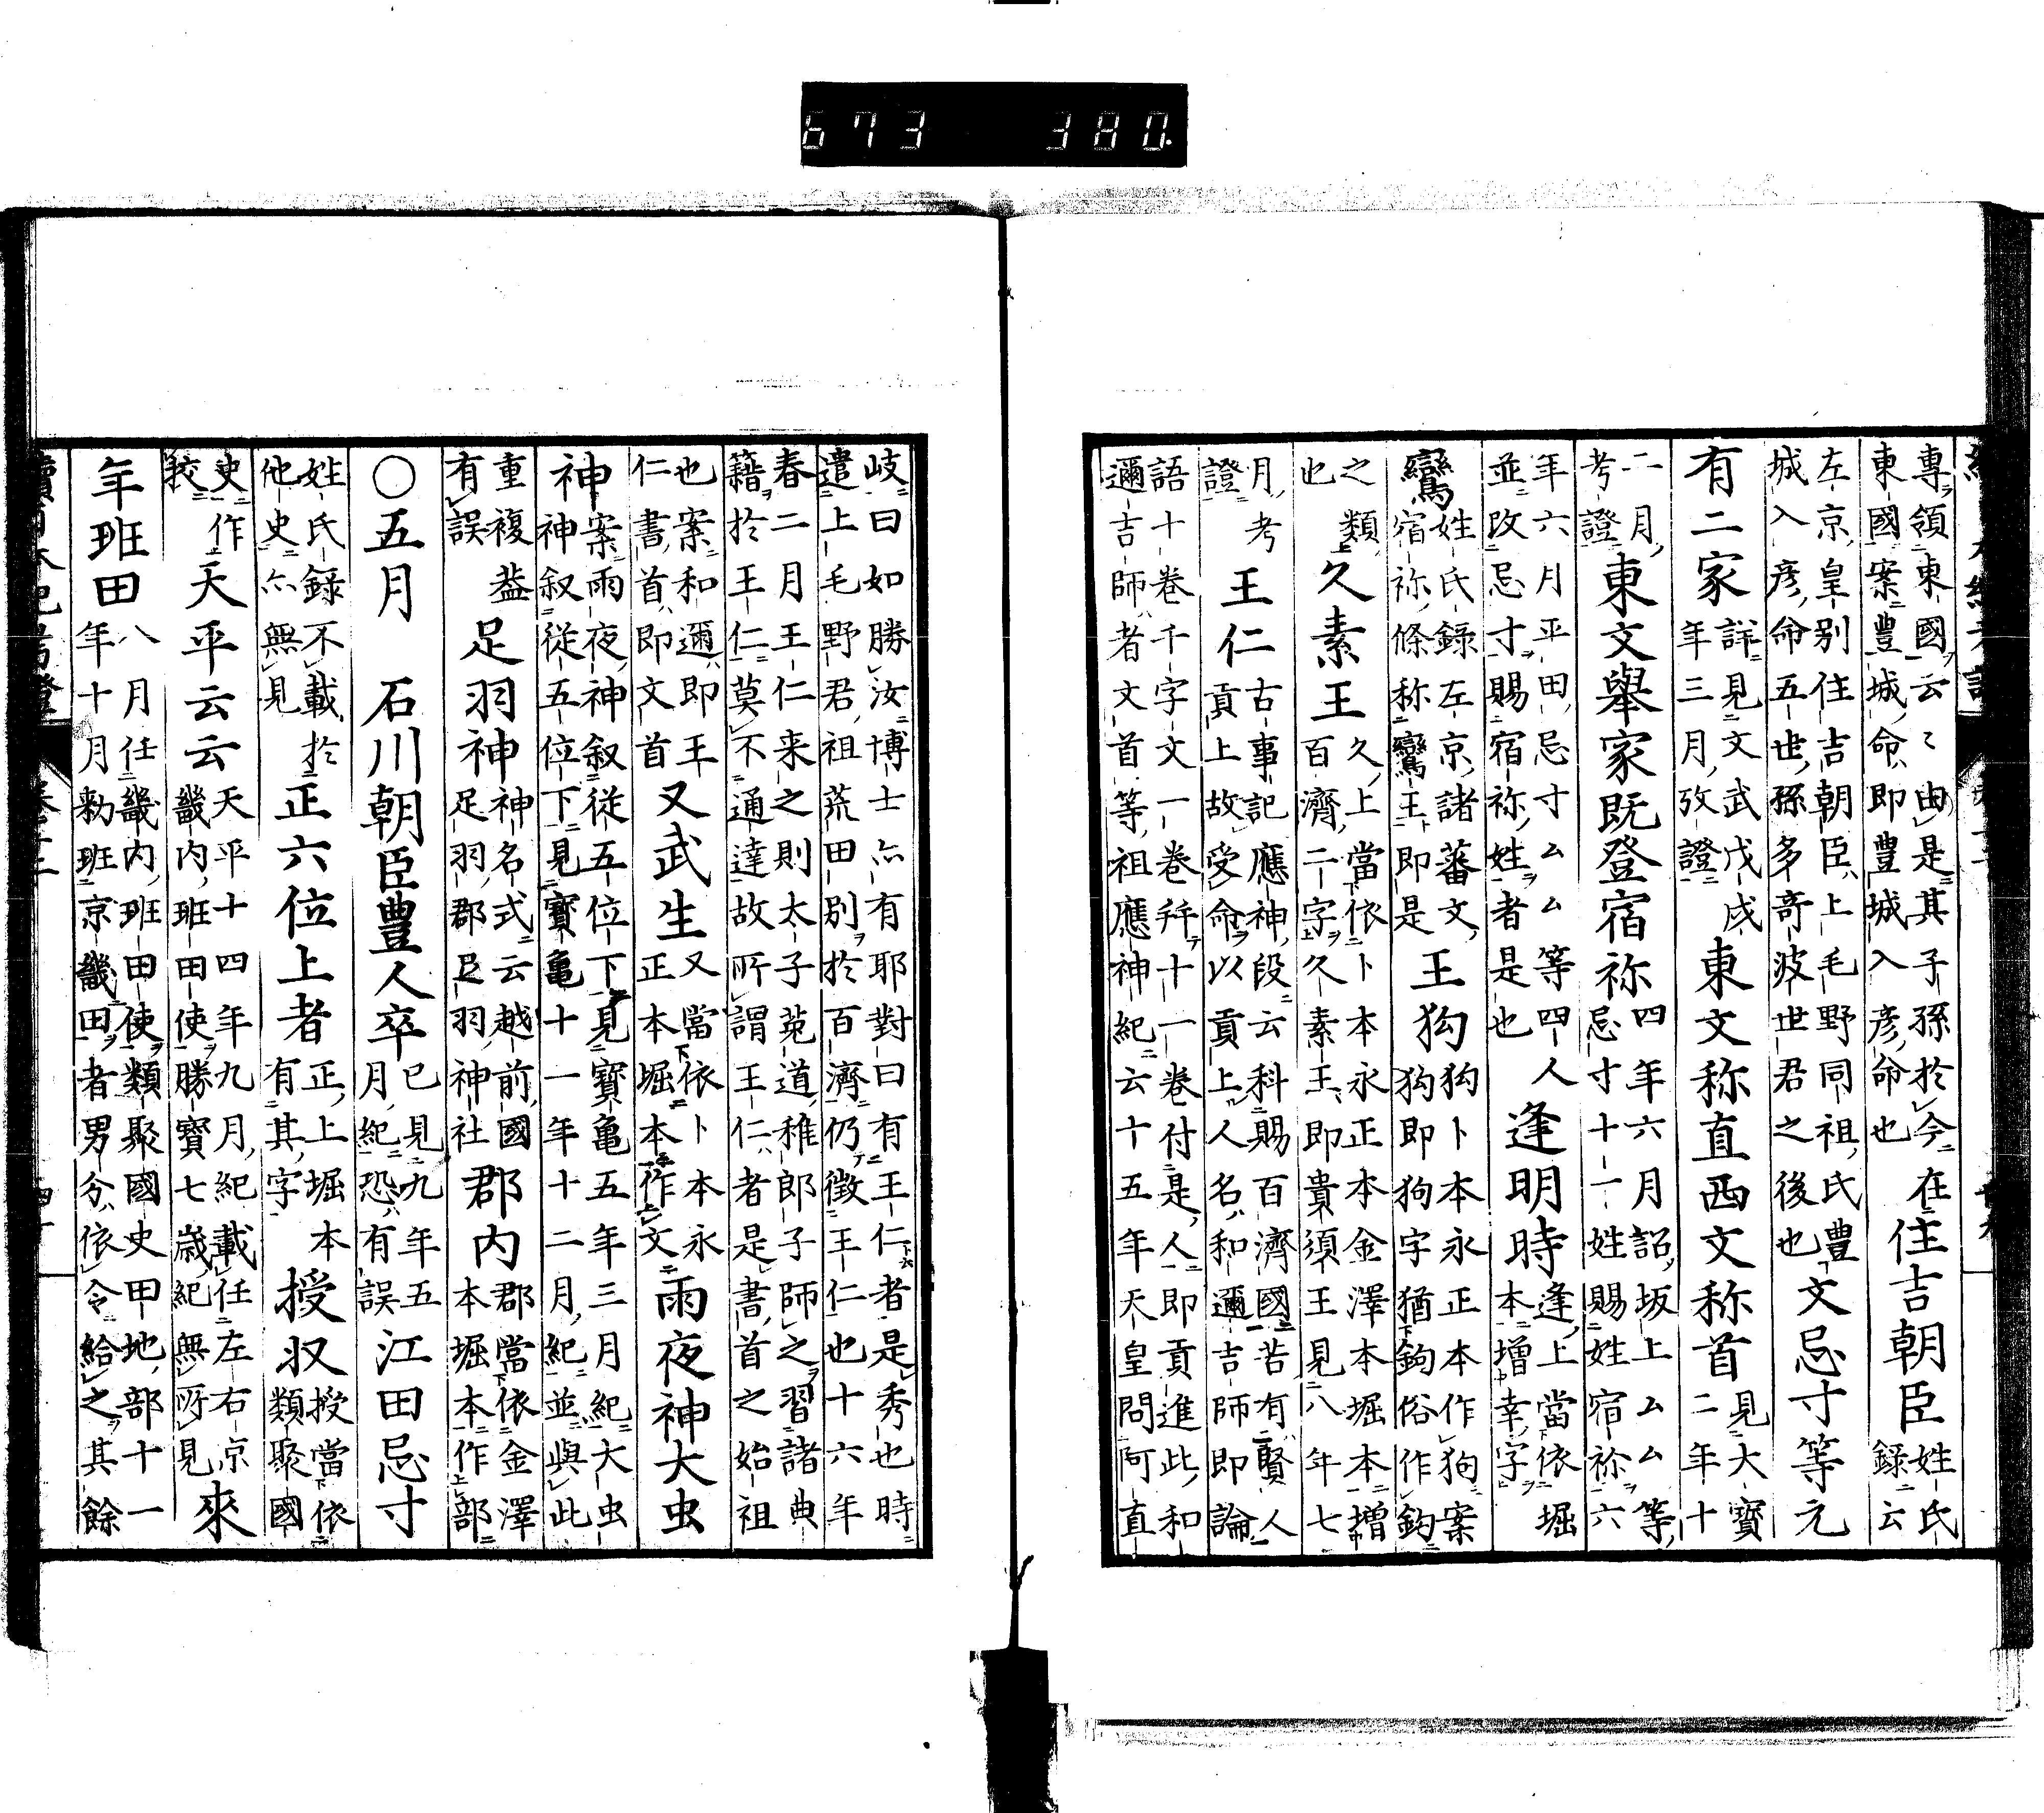 673 380.
專領東國云〻由是其子孫於今在
東國案豊城命即豊城入彦命也
住吉朝臣
姓氏
錄云
左京皇别住吉朝臣上毛野同祖氏豊
城入彦命五世孫多奇波世君之後也
文忌寸等元
有二家
詳見文武戊戌
年三月攷證
東文称直西文称首
見大寳
二年十
二月
考證
東文擧家既登宿祢
四年六月詔坂上ムム等
忌寸十一姓賜姓宿祢六
年六月平田忌寸ムム等四人
並改忌寸賜宿祢姓者是也
逢明時
逢上當依堀
本増幸字
鸞
姓氏錄左京諸蕃文
宿祢條称鸞王即是
王狗
狗卜本永正本作狗案
狗即狗字猶鉤俗作鈎
之類
也
久素王
久上當依卜本永正本金澤本堀本増
百濟二字久素王即貴須王見八年七
月考
證
王仁
古事記應神段云科賜百濟國苦有賢人
貢上故受命以貢上人名和邇吉師即論
語十卷千字文一卷并十一卷付是人即貢進此和
邇吉師者文首等祖應神紀云十五年天皇問阿直
岐曰如勝汝博士亦有耶對曰有王仁者是秀也時
遣上毛野君祖荒田别於百濟仍徴王仁也十六年
春二月王仁来之則太子菟道稚郎子師之習諸典
籍於王仁莫不通達故所謂王仁者是書首之始祖
也案和邇即王
仁書首即文首
又武生
又當依卜本永
正本堀本作文
雨夜神大虫
神
案雨夜神叙従五位下見寳亀五年三月紀大虫
神叙従五位下見寳亀十一年十二月紀並與此
重複葢
有誤
足羽神
神名式云越前國
足羽郡足羽神社
郡内
郡當依金澤
本堀本作部
〇五月
石川朝臣豊人卒
已見九年五
月紀恐有誤
江田忌寸
姓氏録不載於
他史亦無見
正六位上者
正上堀本
有其字
授収
授當依
類聚國
史作
校
天平云云
天平十四年九月紀載任左右京
畿内班田使勝寳七歳紀無所見
來
年班田
八月任畿内班田使類聚國史甲地部十一
年十月勅班京畿田者男分依令給之其餘